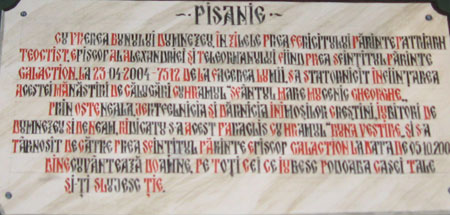 PISANIE
CU VREREA BUNULUI DUMNEZEU, ÎN ZILELE PREA FERICITULUI PĂRINTE PATRIARH
TEOCTIST, EPISCOP AL ALEXANDRIEI ȘI TELEORMANULUI FIIND PREA SFINȚITUL PĂRINTE
GALACTION, LA 23·04·2004 - 7512 DE LA FACEREA LUMII, S-A STATORNICIT ÎNFIINȚAREA
ACESTEI MĂNĂSTIRI DE CĂLUGĂRI CU HRAMUL "SFÂNTUL MARE MUCENIC GHEORGHE".
PRIN OSTENEALA, DESTOINICIA ȘI DĂRNICIA INIMOȘILOR CREȘTINI, IUBITORI DE
DUMNEZEU ȘI DE NEAM, RIDICATU S-A ACEST PARACLIS CU HRAMUL "BUNA VESTIRE", ȘI S-A
TÂRNOSIT DE CĂTRE PREA SFINȚITUL PĂRINTE EPISCOP GALACTION LA DATA DE 05.10.200
BINECUVÂNTEAZĂ DOAMNE, PE TOȚI CEI CE IUBESC PODOABA CASEI TALE
ȘI-ȚI SLUJESC ȚIE.